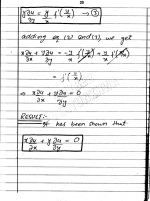 y∂u/∂y = y/x f'(y/x) → ③
adding eq (2) and (3), we get
x∂u/∂x + y∂u/∂y = -y/x f'(y/x) + y/x f'(y/x)
⇒ x∂u/∂x + y∂u/∂y = 0
RESULT:-
It has been shown that
x∂u/∂x + y∂u/∂y = 0